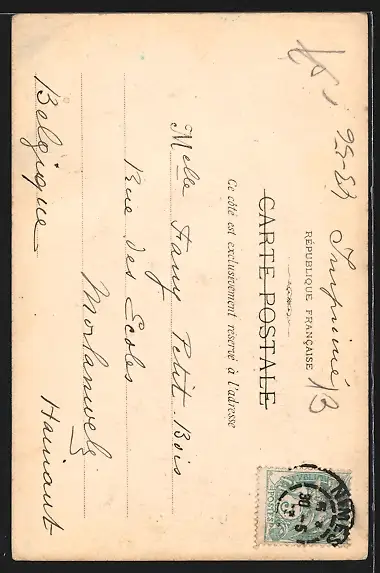 Imprimé
RÉPUBLIQUE FRANÇAISE
CARTE POSTALE
Ce côté est exclusivement réservé à l'adresse
Melle Fany Petit-Bois
Rue des Ecoles
Morlanwelz
Hainaut
Belgique
NIMES
30 5
POSTES